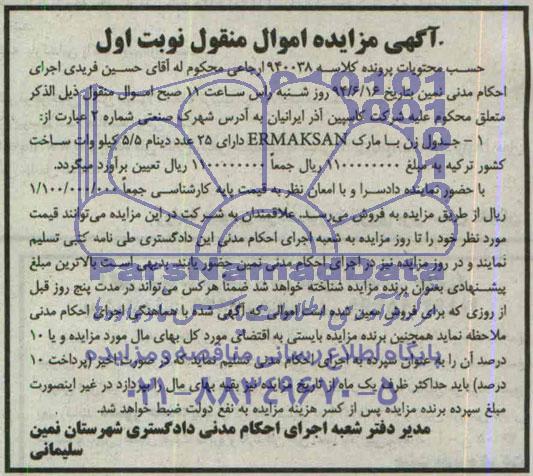 آگهی مزایده اموال منقول نوبت اول
حسب محتویات پرونده کلاسه ۹۴۰۰۳۸ ارجاعی محکوم له آقای حسین فریدی اجرای
احکام مدنی نمین بتاریخ ۹۴/۶/۱۶ روز شنبه راس ساعت ۱۱ صبح اموال منقول ذیل الذکر
متعلق محکوم علیه شرکت کاسپین آذر ایرانیان به آدرس شهرک صنعتی شماره ۲ عبارت از:
۱ - جدول زن با مارک ERMAKSAN دارای ۲۵ عدد دینام ۵/۵ کیلو وات ساخت
کشور ترکیه به مبلغ ۱۱۰۰۰۰۰۰۰۰ ریال جمعاً ۱۱۰۰۰۰۰۰۰۰ ریال تعیین برآورد میگردد.
با حضور نماینده دادسرا و با امعان نظر به قیمت پایه کارشناسی جمعاً ۱/۱۰۰/۰۰۰/۰۰۰
ریال از طریق مزایده به فروش می‌رسد. علاقمندان به شرکت در این مزایده می‌توانند قیمت
مورد نظر خود را تا روز مزایده به شعبه اجرای احکام مدنی این دادگستری طی نامه کتبی تسلیم
نمایند و در روز مزایده نیز در اجرای احکام مدنی نمین حضور یابند بدیهی است بالاترین مبلغ
پیشنهادی بعنوان برنده مزایده شناخته خواهد شد ضمنا هرکس می‌تواند در مدت پنج روز قبل
از روزی که برای فروش معین شده است اموالی که آگهی شده با هماهنگی اجرای احکام مدنی
ملاحظه نماید همچنین برنده مزایده بایستی به اقتضای مورد کل بهای مال مورد مزایده و یا ۱۰
درصد آن را به عنوان سپرده به اجرای احکام مدنی تسلیم نماید که در صورت تاخیر (پرداخت ۱۰
درصد) باید حداکثر ظرف یک ماه از تاریخ مزایده نیز بقیه بهای مال را بپردازد در غیر اینصورت
مبلغ سپرده برنده مزایده پس از کسر هزینه مزایده به نفع دولت ضبط خواهد شد.
مدیر دفتر شعبه اجرای احکام مدنی دادگستری شهرستان نمین
سلیمانی
ParsNamadData
پایگاه اطلاع رسانی مناقصه و مزایده
۰۲۱-۸۸۳۴۹۶۷۰-۵